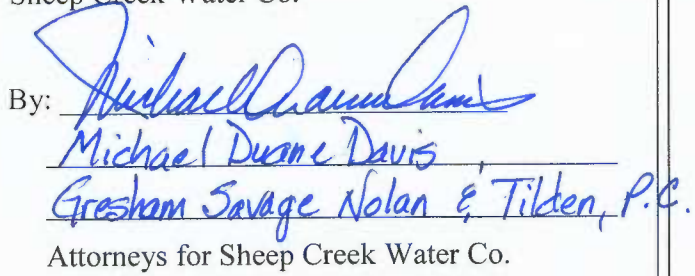 Sheep Creek Water Co.
By: Michael Duane Davis
Michael Duane Davis,
Gresham Savage Nolan & Tilden, P.C.
Attorneys for Sheep Creek Water Co.